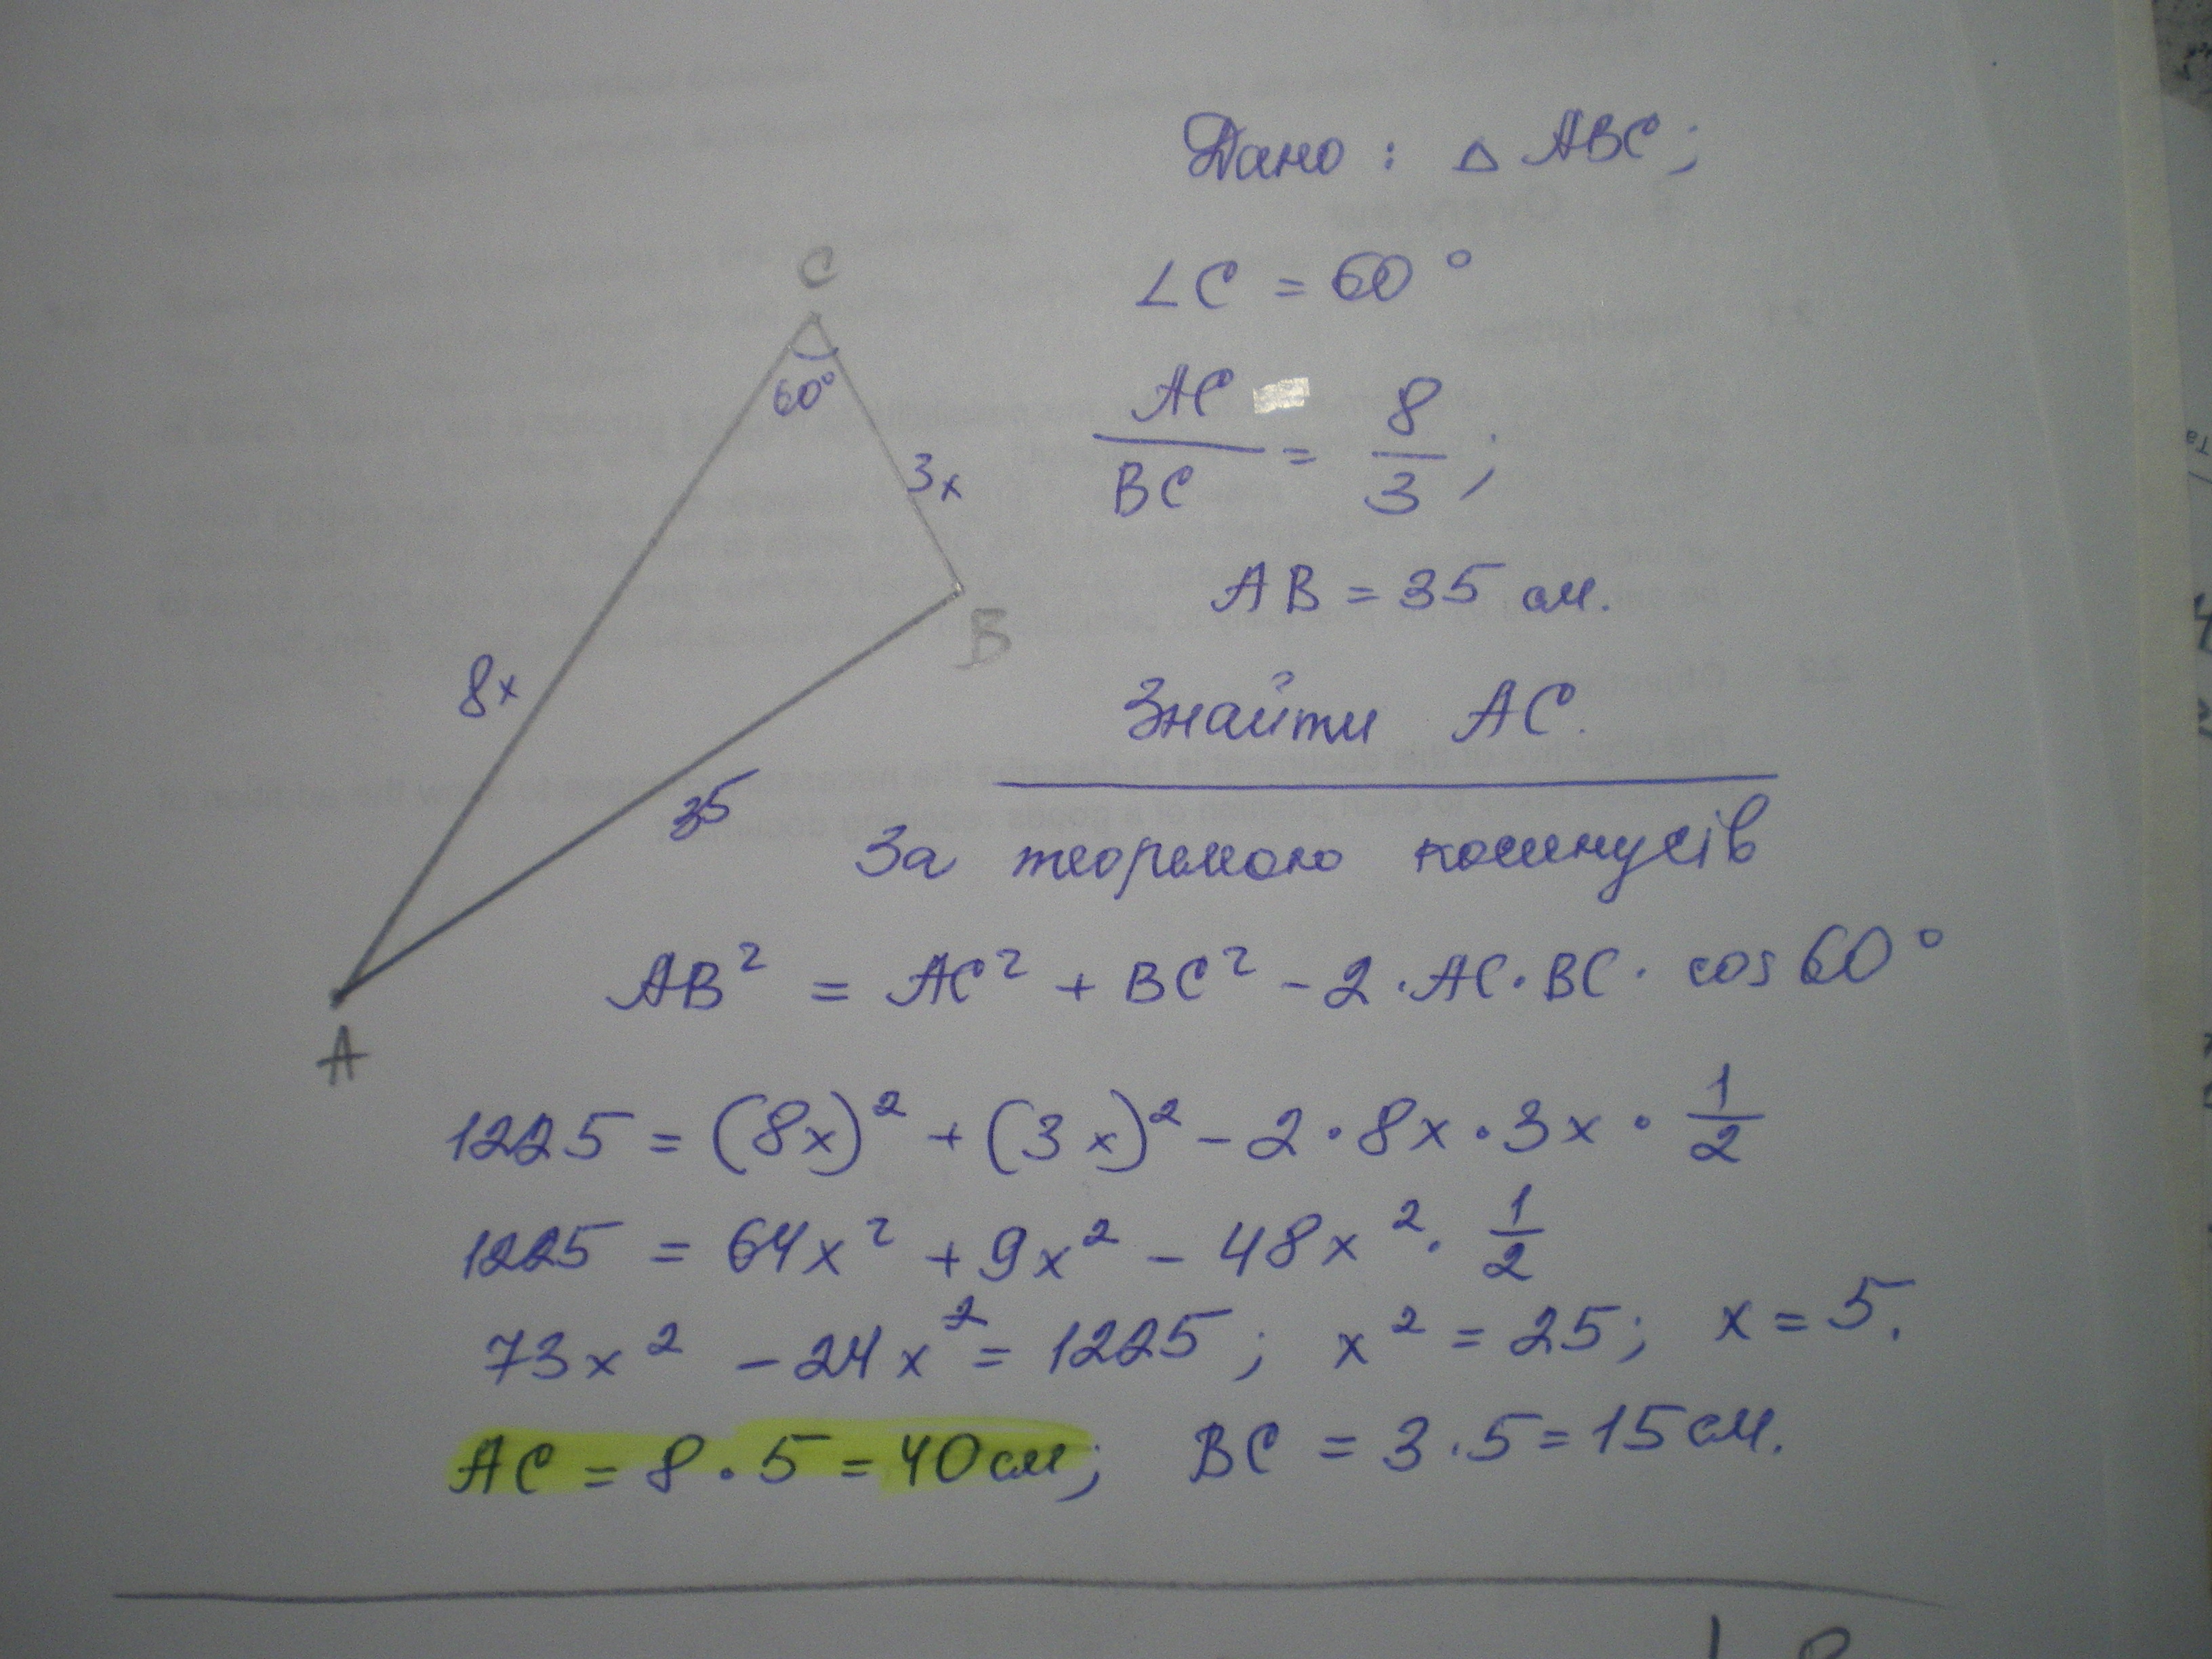 Дано : △ ABC;
∠C = 60°
AC/BC = 8/3;
AB = 35 см.
Знайти AC.
C
60°
3x
B
8x
35
A
За теоремою косинусів
AB² = AC² + BC² - 2 · AC · BC · cos 60°
1225 = (8x)² + (3x)² - 2 · 8x · 3x · 1/2
1225 = 64x² + 9x² - 48x² · 1/2
73x² - 24x² = 1225; x² = 25; x = 5.
AC = 8 · 5 = 40 см; BC = 3 · 5 = 15 см.